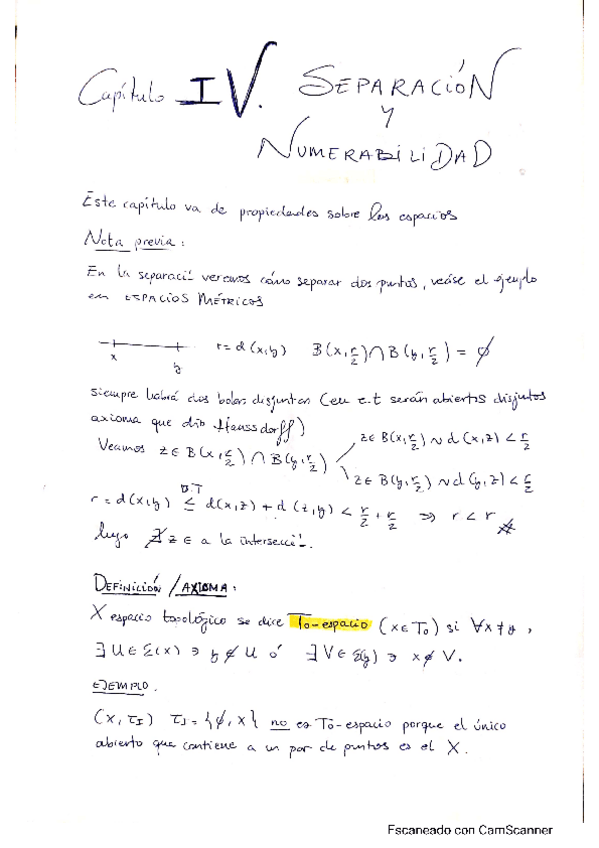 Capítulo IV. SEPARACIÓN
Y
NUMERABILIDAD
Este capítulo va de propiedades sobre los espacios
Nota previa:
En la separaci- veremos cómo separar dos puntos, veáse el ejemplo
en ESPACIOS MÉTRICOS
x y r = d(x,y) B(x, r/2) ∩ B(y, r/2) = ∅
siempre habrá dos bolas disjuntas (en e.t serán abiertos disjutos
axioma que dio Haussdorff)
Veamos z ∈ B(x, r/2) ∩ B(y, r/2)
z ∈ B(x, r/2) ~ d(x,z) < r/2
z ∈ B(y, r/2) ~ d(y,z) < r/2
D.T
r = d(x,y) ≤ d(x,z) + d(z,y) < r/2 + r/2 ⇒ r < r #
luego ∄ z ∈ a la intersecci-.
DEFINICIÓN / AXIOMA:
X espacio topológico se dice To-espacio (X ∈ To) si ∀x ≠ y,
∃ U ∈ ξ(x) ∋ y ∉ U ó ∃ V ∈ ξ(y) ∋ x ∉ V.
EJEMPLO.
(X, τI) τI = {∅, X} no es To-espacio porque el único
abierto que contiene a un par de puntos es el X.
Escaneado con CamScanner